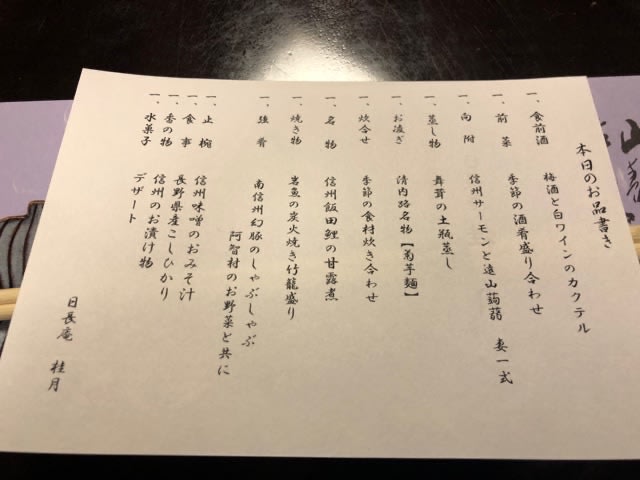 本日のお品書き
一、食前酒　梅酒と白ワインのカクテル
一、前菜　季節の酒肴盛り合わせ
一、向附　信州サーモンと遠山蒟蒻　妻一式
一、蒸し物　舞茸の土瓶蒸し
一、お凌ぎ　清内路名物【菊芋麺】
一、炊合せ　季節の食材炊き合わせ
一、名物　信州飯田鯉の甘露煮
一、焼き物　岩魚の炭火焼き竹籠盛り
一、強肴　南信州幻豚のしゃぶしゃぶ
阿智村のお野菜と共に
一、止椀　信州味噌のおみそ汁
一、食事　長野県産こしひかり
一、香の物　信州のお漬け物
一、水菓子　デザート
日長庵　桂月